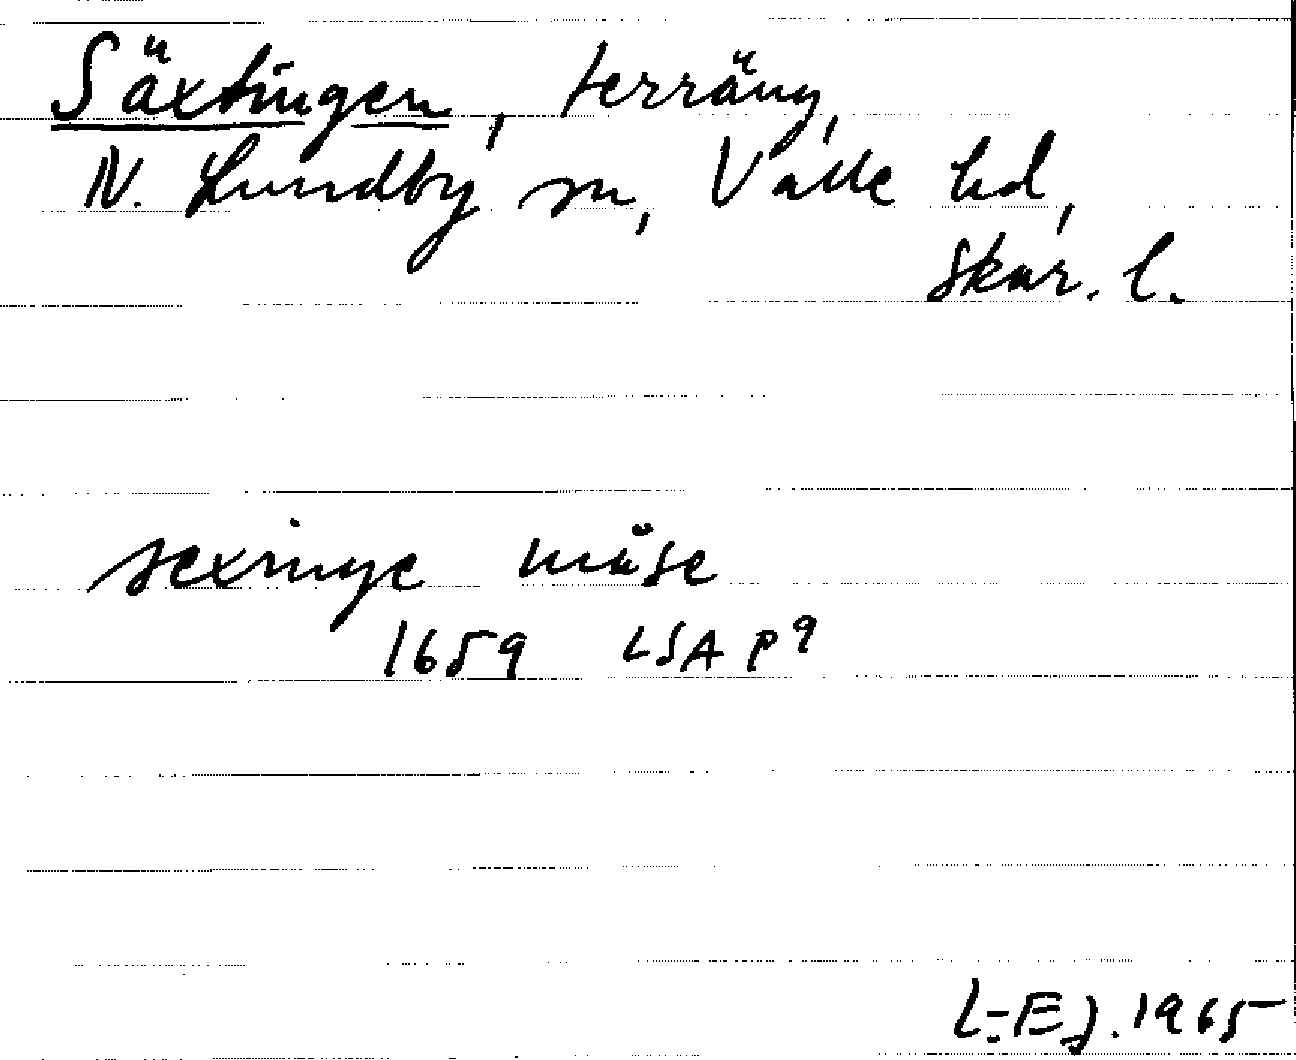 Säxtingen, terräng,
N. Lundby sn, Valle hd,
Skar. l.
sexringe müse
1659 LSA P9
L-EJ. 1965